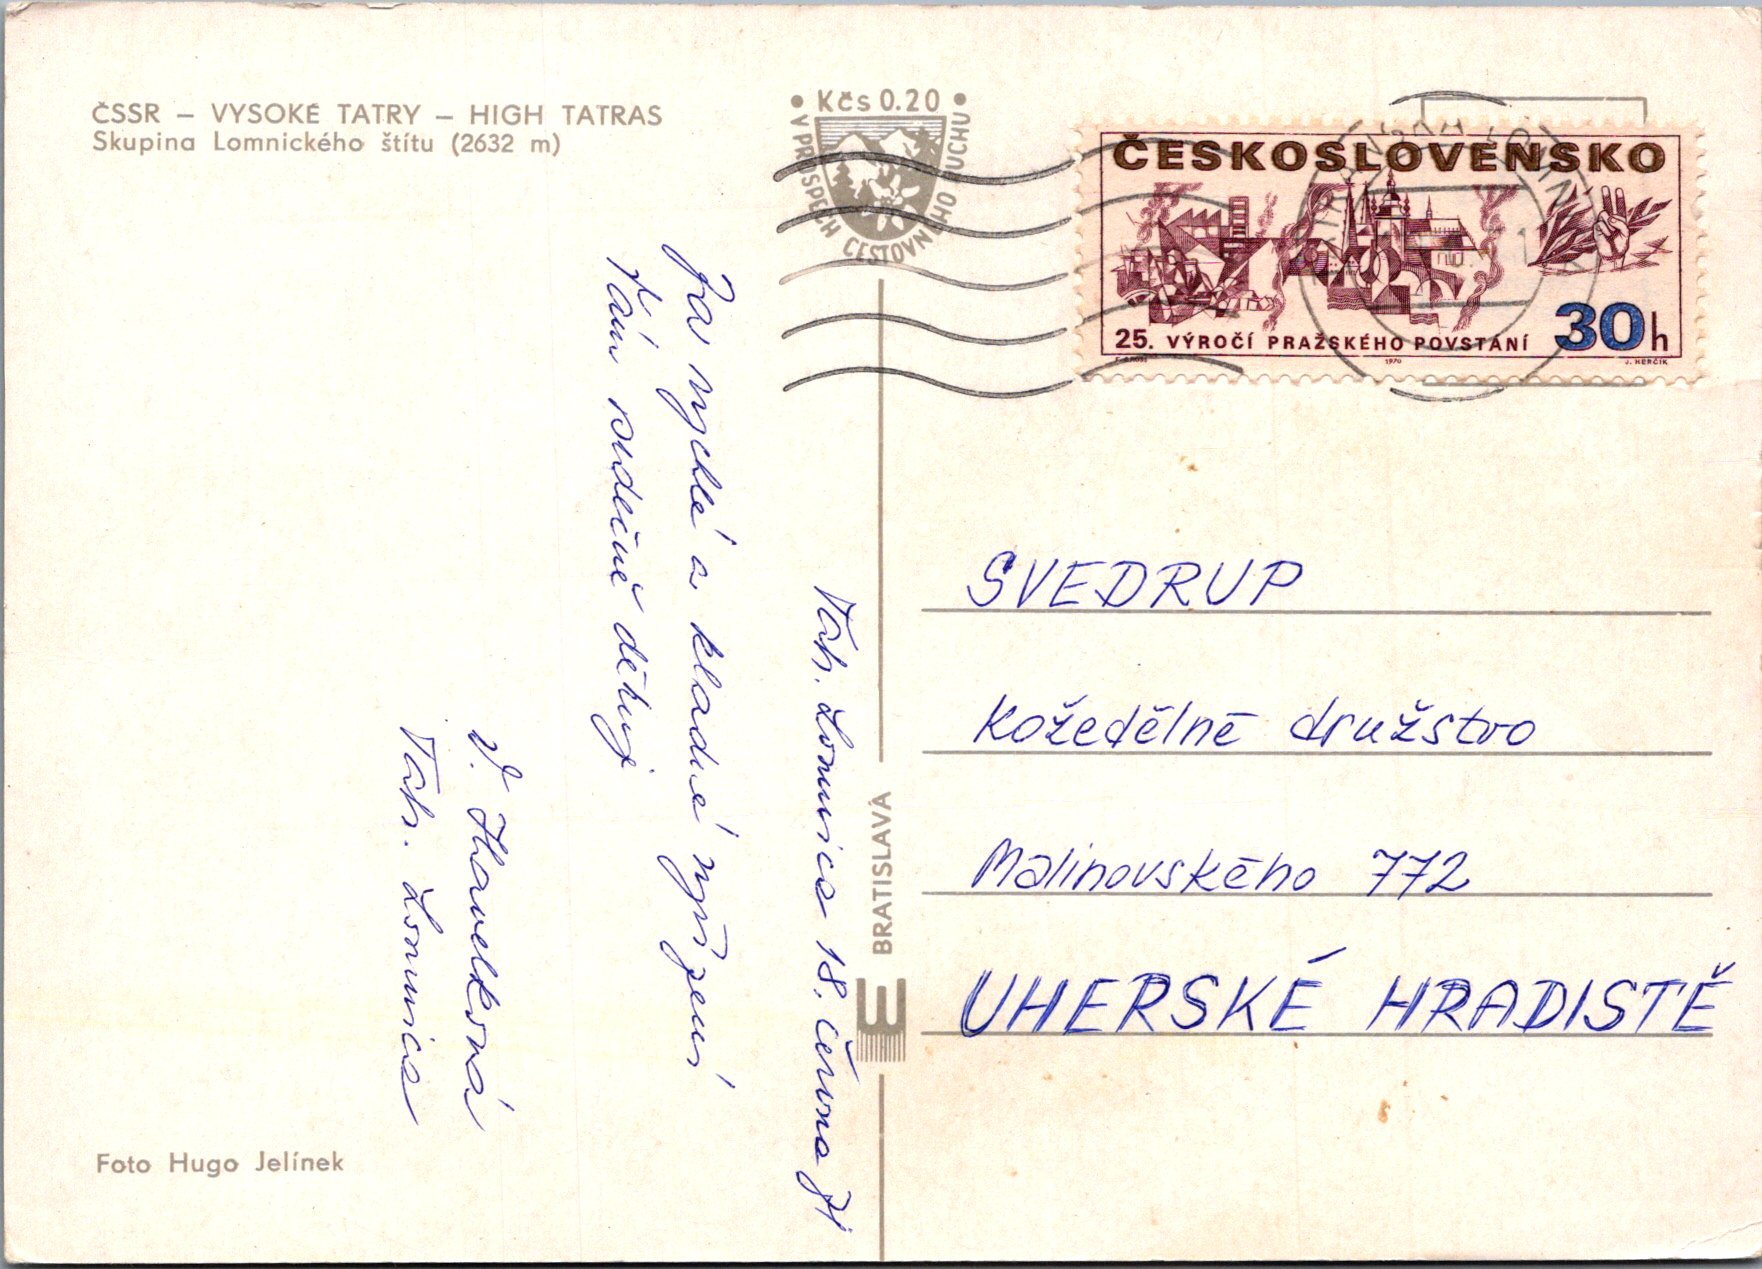 ČSSR – VYSOKÉ TATRY – HIGH TATRAS
Skupina Lomnického štítu (2632 m)
• Kčs 0.20 •
V PROSPECH CESTOVNÉHO RUCHU
ČESKOSLOVENSKO
25. VÝROČÍ PRAŽSKÉHO POVSTÁNÍ
30h
1970
J. HERČÍK
Tatr. Lomnica 18. června 71
Za rychlé a kladné vyřízení
Vám srdečně děkuji
V. Havelková
Tatr. Lomnica
SVEDRUP
Kožedělné družstvo
Malinovského 772
UHERSKÉ HRADISTĚ
BRATISLAVA
Foto Hugo Jelínek